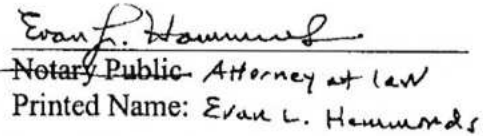 Evan L. Hammonds
Notary Public Attorney at law
Printed Name: Evan L. Hammonds